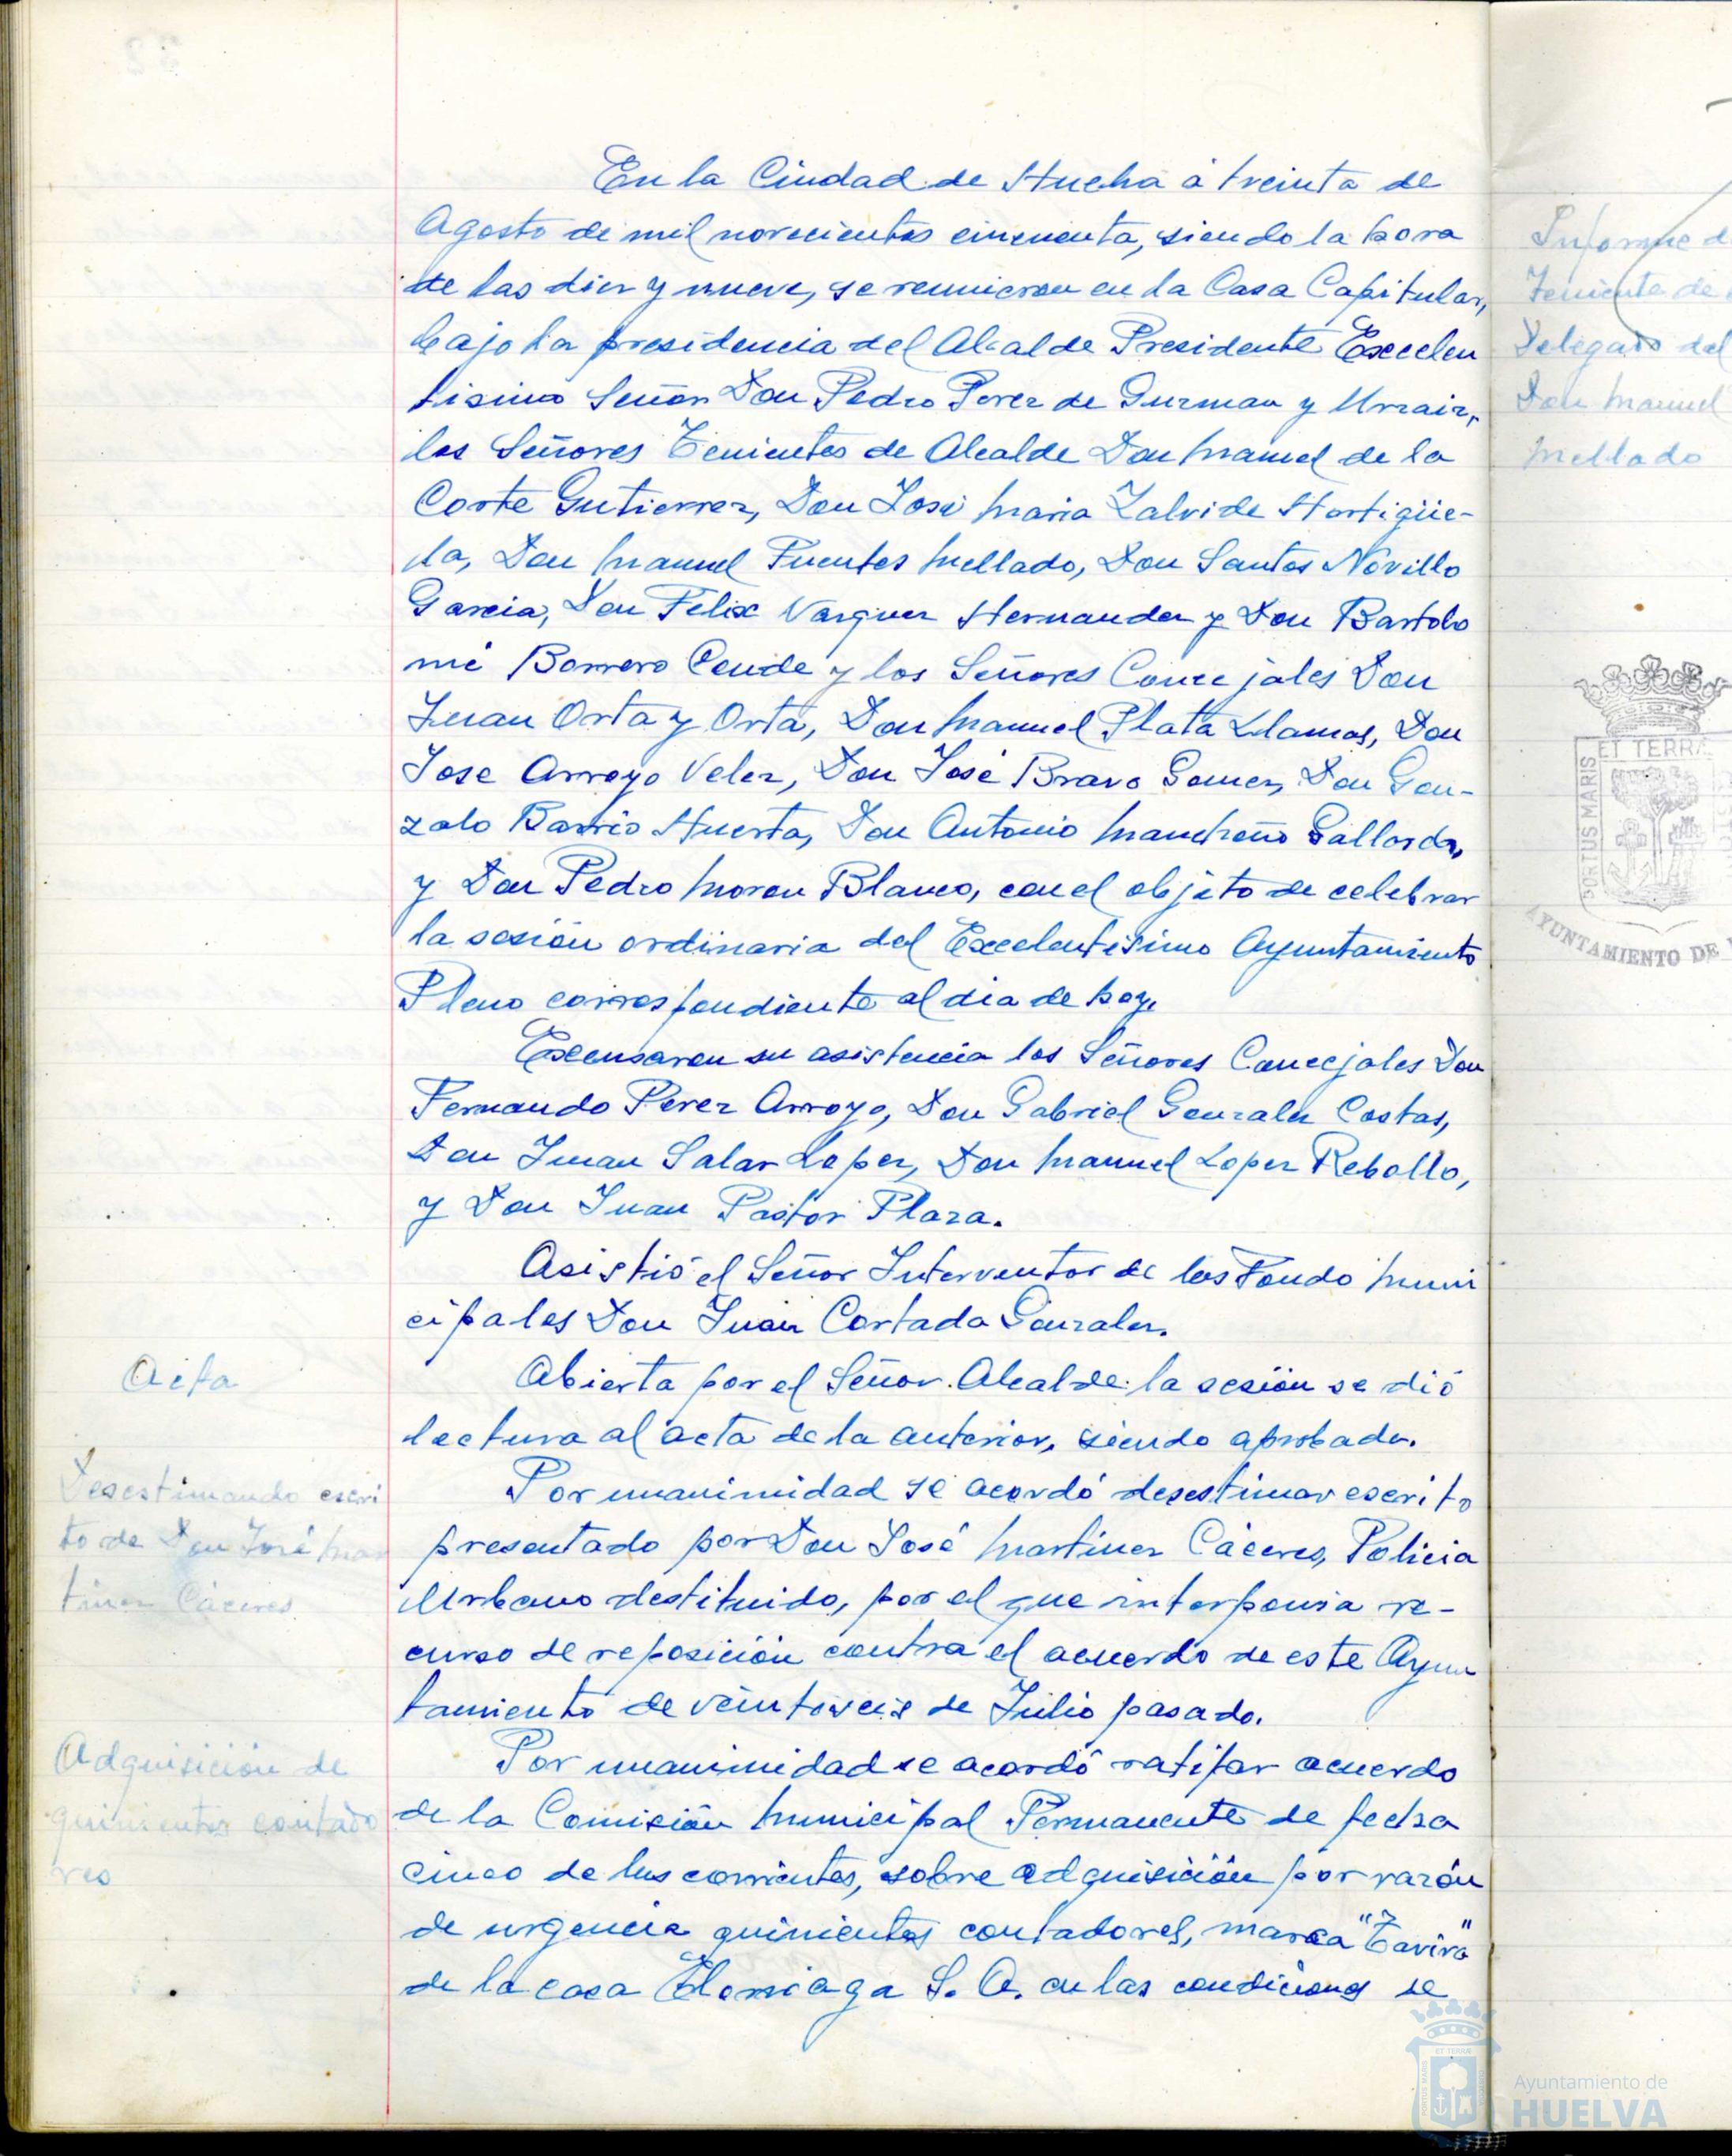 En la Ciudad de Huelva á treinta de
Agosto de mil novecientos cincuenta, siendo la hora
de las diez y nueve, se reunieron en la Casa Capitular,
bajo la presidencia del Alcalde Presidente Excelen
tisimo Señor Don Pedro Perez de Guzman y Urzaiz,
los Señores Tenientes de Alcalde Don Manuel de la
Corte Gutierrez, Don José Maria Zalvide Hortigüe-
la, Don Manuel Fuentes Mellado, Don Santos Novillo
Garcia, Don Felix Vazquez Hernandez y Don Bartolo
mé Borrero Conde y los Señores Concejales Don
Juan Orta y Orta, Don Manuel Plata Llamas, Don
Jose Arroyo Velez, Don José Bravo Gomez, Don Gon-
zalo Barrio Huerta, Don Antonio Mancheño Gallardo,
y Don Pedro Moron Blanco, con el objeto de celebrar
la sesión ordinaria del Excelentisimo Ayuntamiento
Pleno correspondiente al dia de hoy.
Excusaron su asistencia los Señores Concejales Don
Fernando Perez Arroyo, Don Gabriel Gonzalez Costas,
Don Juan Salar Lopez, Don Manuel Lopez Rebollo,
y Don Juan Pastor Plaza.
Asistió el Señor Interventor de los Fondo Muni
cipales Don Juan Cortada Gonzalez.
Acta
Abierta por el Señor Alcalde la sesión se dió
lectura al acta de la anterior, siendo aprobada.
Desestimando escri
to de Don José Mar
tinez Cáceres
Por unanimidad se acordó desestimar escrito
presentado por Don José Martinez Cáceres, Policia
Urbano destituido, por el que interponia re-
curso de reposición contra el acuerdo de este Ayun
tamiento de veintiseis de Julio pasado.
Adquisición de
quinientos contado
res
Por unanimidad se acordó ratifar acuerdo
de la Comisión Municipal Permanente de fecha
cinco de los corrientes, sobre adquisición por razón
de urgencia quinientos contadores, marca "Tavira"
de la casa S. A. en las condiciones se
Informe d
Teniente de
Delegado del
Don Manuel
Mellado
PORTUS MARIS ET TERRÆ
AYUNTAMIENTO DE
Ayuntamiento de
HUELVA